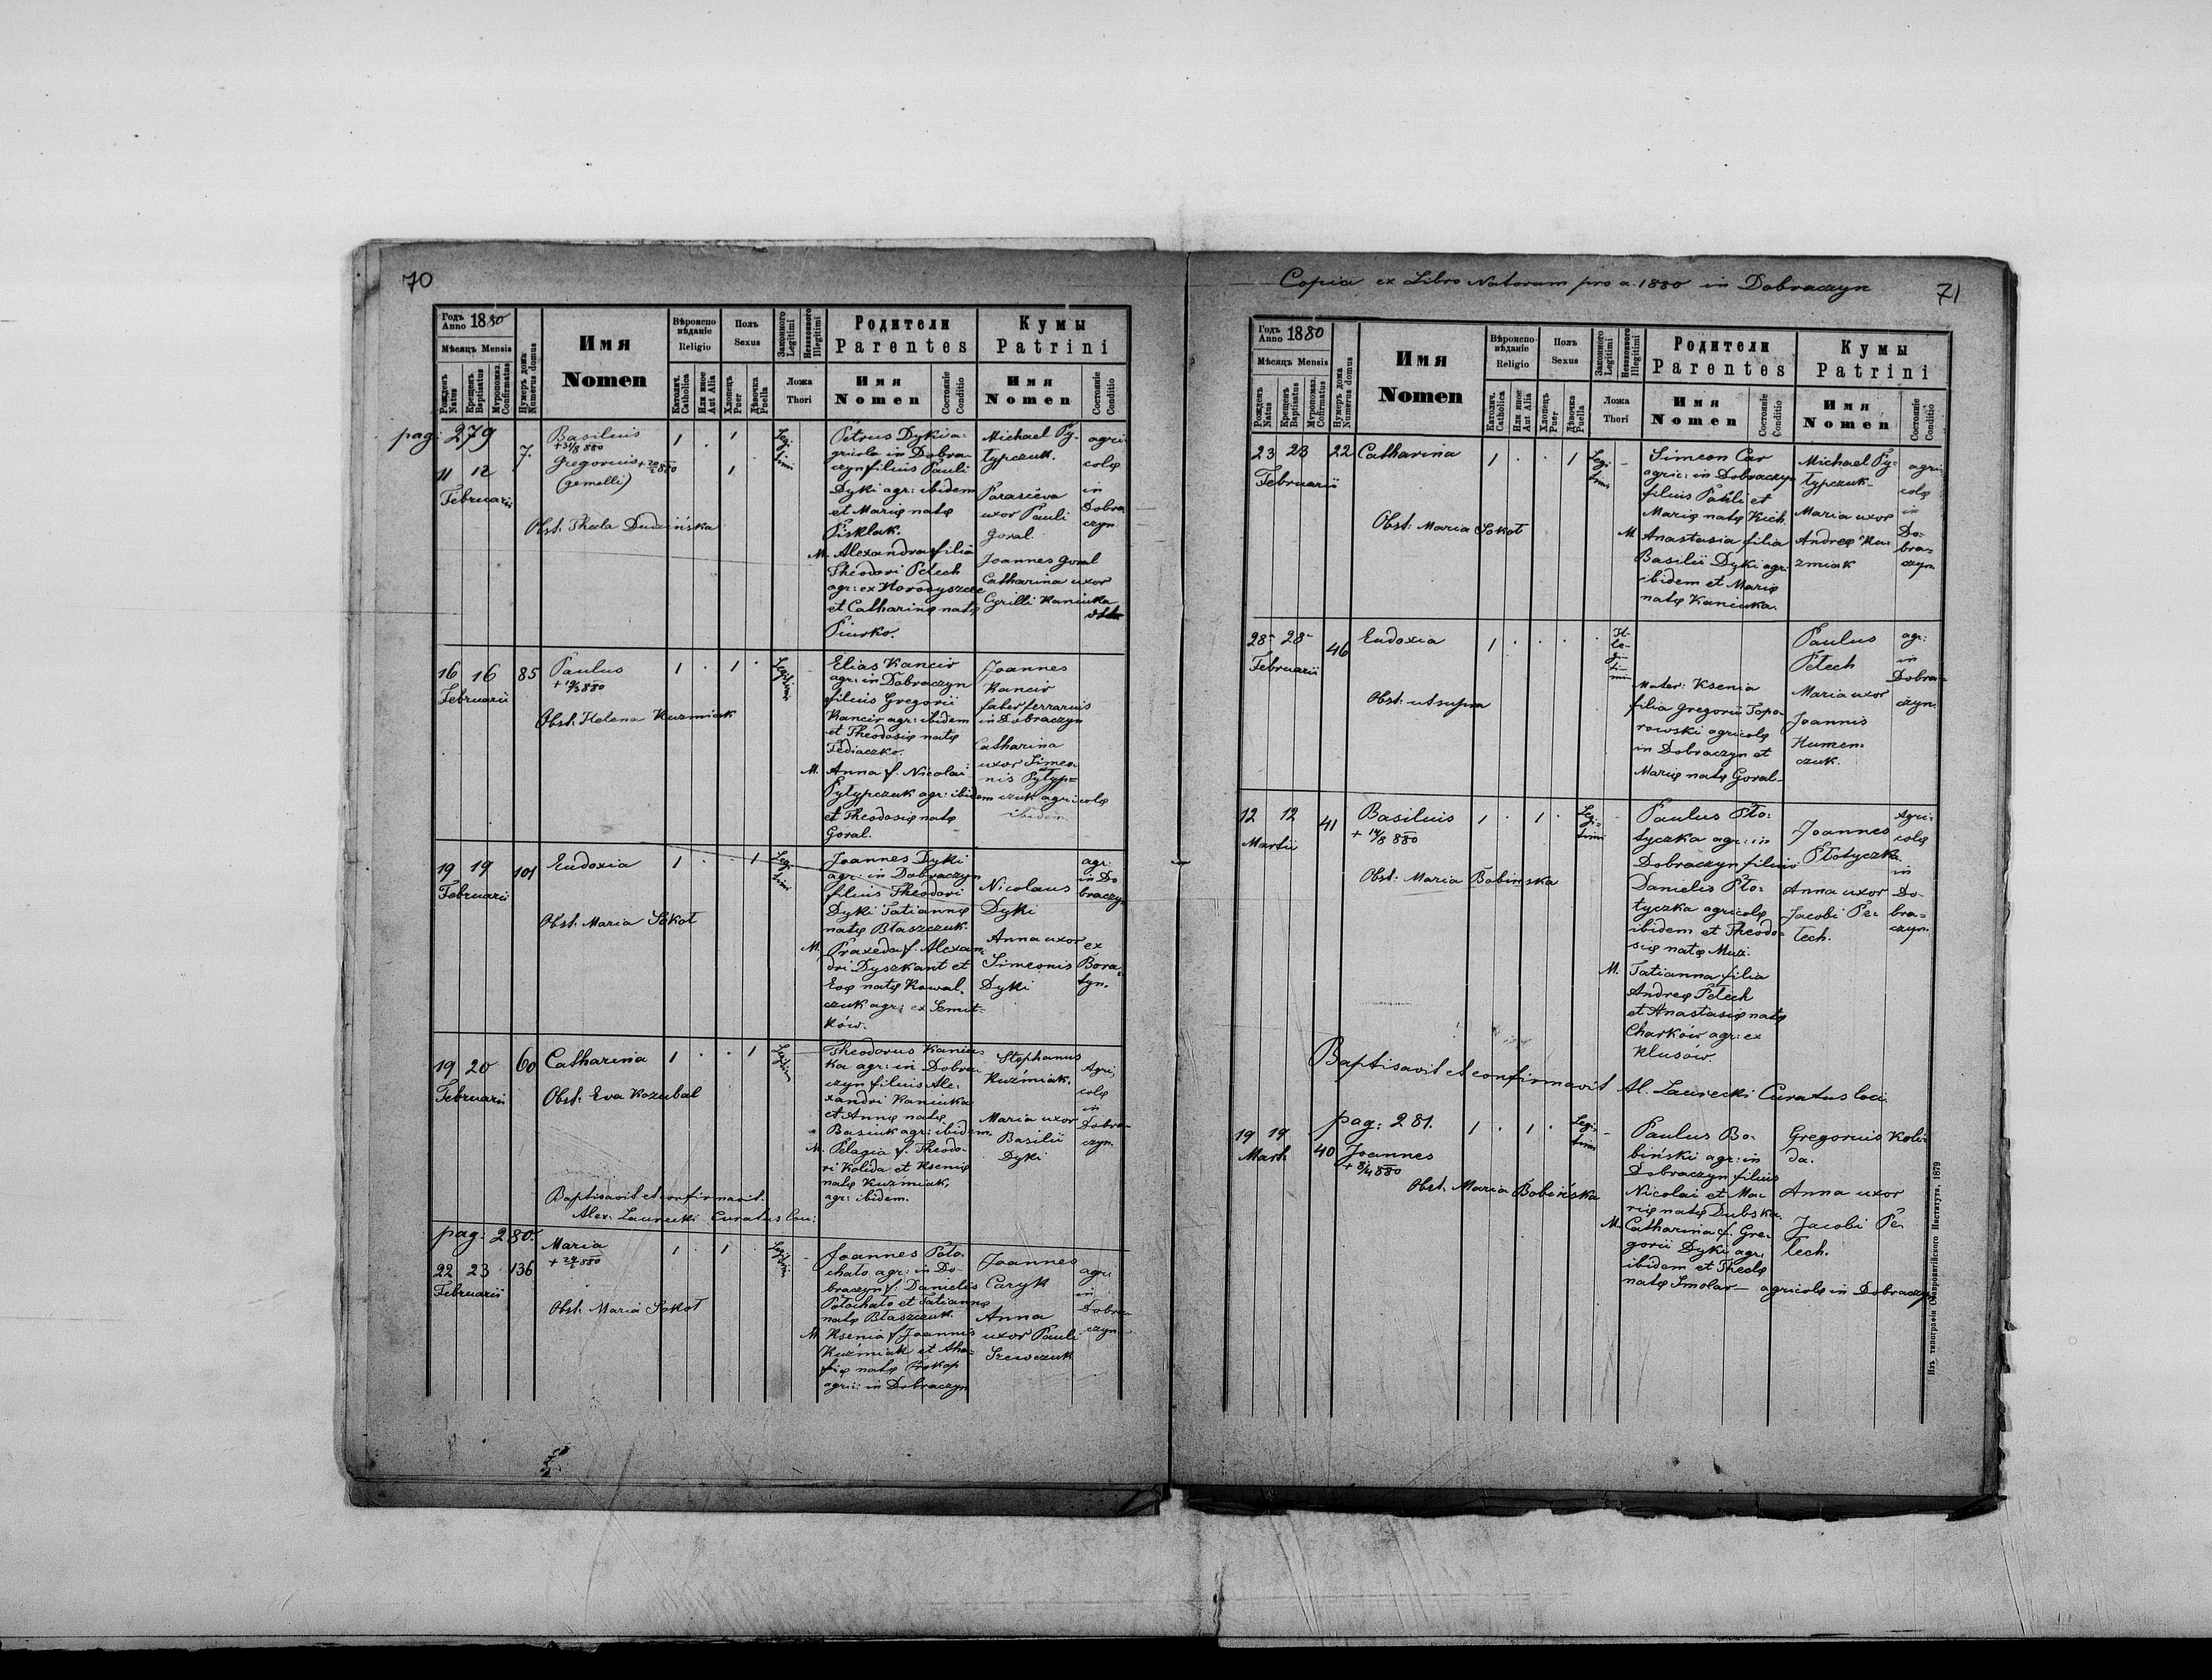 70
Годъ Anno 1880
Мѣсяцъ Mensis
Рожденъ Natus
Крещенъ Baptisatus
Муропомаз. Confirmatus
Нумеръ домъ Numerus domus
Имя
Nomen
Вѣроиспо
вѣданіе
Religio
Католич. Catholica
Или иное Aut Alia
Полъ
Sexus
Хлопецъ Puer
Дѣвочка Puella
Законного Legitimi
Незаконного Illegitimi
Ложа
Thori
Родители
Parentes
Имя
Nomen
Состояніе Conditio
Кумы
Patrini
Имя
Nomen
Состояніе Conditio
pag: 279
11 12
Februarii
7.
Basilius
+ 31/8 880
Gregorius + 20/2 880
(gemelli)
Obst. Thecla Dudzińska
1 . 1
1
Legitimi
Petrus Dyki a-
gricola in Dobra-
czyn filius Pauli
Dyki agr: ibidem
et Marię natę
Pisklak.
M. Alexandra filia
Theodori Pełech
agr: ex Horodyszcze
et Catharinę natę
Piurko.
Michael Py-
łypczuk.
Parasceva
uxor Pauli
Goral
Joannes Goral
Catharina uxor
Cyrilli Kaniuka
agri-
colę
in
Dobra
czyn
16 16
Februarii
85
Paulus
+ 19/3 880
Obst. Helena Kuzmiak
1 . 1 .
Legitimi
Elias Kancir
agr: in Dobraczyn
filius Gregorii
Kancir agr: ibidem
et Theodosię natę
Fediaczko.
M. Anna f. Nicolai
Pyłypczuk agr: ibidem
et Theodosię natę
Goral.
Joannes
Kancir
faber ferrarius
in Dobraczyn
Catharina
uxor Simeo
nis Pyłyp=
czuk agricolę
ibidem
19 19
Februarii
101
Eudoxia
Obst. Maria Sokoł
1 . . 1
Legitimi
Joannes Dyki
agr: in Dobraczyn
filius Theodori
Dyki Tatiannę
natę Błaszczuk.
M. Praxeda f. Alexan-
dri Dyszkant et
Evę natę Kowal-
czuk agr: ex Semit-
ków.
Nicolaus
Dyki
Anna uxor
Simeonis
Dyki
agr:
in Do
braczyn
ex
Bora-
tyn.
19 20
Februarii
60
Catharina
Obst. Eva Kozubal
1 . . 1
Legitimi
Theodorus Kaniu-
ka agr: in Dobra-
czyn filius Ale-
xandri Kaniuka
et Annę natę
Basiuk agr: ibidem
M. Pelagia f. Theodo-
ri Kolida et Ksenię
natę Kuźmiak,
agr: ibidem.
Stephanus
Kuźmiak.
Maria uxor
Basilii
Dyki
Agri
colę
in
Dobra-
czyn.
Baptisavit et confirmavit
Alex. Laurecki Curatus loci
pag: 280.
22 23
Februarii
136
Maria
Obst. Maria Sokoł
1 . 1
Legitimi
Joannes Poto-
chato agr: in Do-
braczyn f. Danielis
Potochato et Tatiannę
natę Błaszczuk.
M. Ksenia f. Joannis
Kuźmiak et Aha-
fię natę Prokop
agric: in Dobraczyn
Joannes
Caryk
Anna
uxor Pauli
Szewczuk
agr:
in
Dobra-
czyn
Copia ex Libro Natorum pro a. 1880 in Dobraczyn
71
Годъ Anno 1880
Мѣсяцъ Mensis
Рожденъ Natus
Крещенъ Baptisatus
Муропомаз. Cofirmatus
Нумеръ дома Numerus domus
Имя
Nomen
Вѣроиспо-
вѣданіе
Religio
Католич. Catholica
Или иное Aut Alia
Полъ
Sexus
Хлопецъ Puer
Дѣвочка Puella
Законного Legitimi
Незаконного Illegitimi
Ложа
Thori
Родители
Parentes
Имя
Nomen
Состояніе Conditio
Кумы
Patrini
Имя
Nomen
Состояніе Conditio
23 23
Februarii
22
Catharina
Obst: Maria Sokoł
1 . . 1
Legitimi
Simeon Car
agric: in Dobraczyn
filius Pauli et
Marię natę Kich.
M. Anastasia filia
Basilii Dyki agr:
ibidem et Marię
natę Kaniuka.
Michael Py-
łypczuk-
Maria uxor
Andreę Ku-
zmiak
agri
colę
in
Do-
bra=
czyn
28 28
Februarii
46
Eudoxia
Obst. ut supra
1 . . .
Il-
le-
gi-
ti-
mi
Mater: Ksenia
filia Gregorii Topo-
rowski agricolę
in Dobraczyn et
Marię natę Goral-
Paulus
Pełech
Maria uxor
Joannis
Humen-
czuk.
agr:
in
Dobra-
czyn.
12 12
Martii
41
Basilius
+ 14/8 880
Obst: Maria Bobinska
1 . 1 .
Legi-
timi
Paulus Pło-
tyczka agr: in
Dobraczyn filius
Danielis Pło-
tyczka agricolę
ibidem et Theodo-
się natę Muzi.
M. Tatianna filia
Andreę Pełech
et Anastasię natę
Charków agr: ex
Klusów.
Joannes
Płotyczka
Anna uxor
Jacobi Pe-
łech.
Agri-
colę
in
Do-
bra=
czyn.
Baptisavit et confirmavit Al. Laurecki Curatus loci
pag: 281.
19 19
Marti
40
Joannes
Obst. Maria Bobińska
1 . 1 .
Legi-
timi
Paulus Bo-
biński agr: in
Dobraczyn filius
Nicolai et Ma-
rię natę Dubska.
M. Catharina f. Gre-
gorii Dyki agr.
ibidem et Theclę
natę Smolar — agricolę in Dobraczyn
Gregorius Koli-
da.
Anna uxor
Jacobi Pe
łech.
Изъ типографіи Ставропигійского Института, 1879